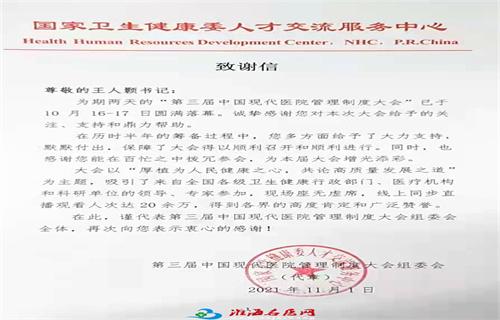 国家卫生健康委人才交流服务中心
Health Human Resources Development Center, NHC, P.R.China
致谢信
尊敬的王人颢书记：
为期两天的“第三届中国现代医院管理制度大会”已于
10 月 16-17 日圆满落幕。诚挚感谢您对本次大会给予的关
注、支持和鼎力帮助。
在历时半年的筹备过程中，您多方面给予了大力支持，
默默付出，保障了大会得以顺利召开和顺利进行。同时，也
感谢您能在百忙之中拨冗参会，为本届大会增光添彩。
大会以“厚植为人民健康之心，共论高质量发展之道”
为主题，吸引了来自全国各级卫生健康行政部门、医疗机构
和科研单位的领导、专家参加，现场座无虚席，线上同步直
播观看人次达 20 余万，得到各界的高度肯定和广泛赞誉。
在此，谨代表第三届中国现代医院管理制度大会组委会
全体，再次向您表示衷心的感谢！
第三届中国现代医院管理制度大会组委会
（代章）
2021 年 11 月 1 日
淮海名医网